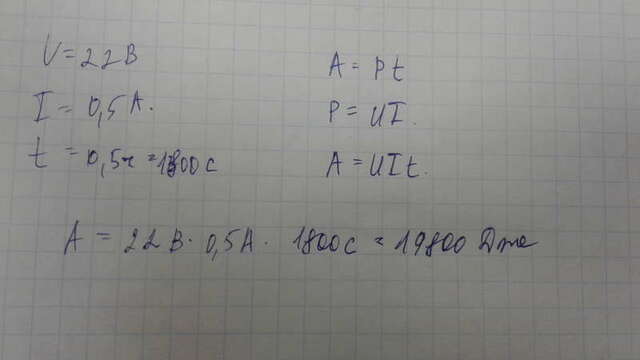 U = 22 В
I = 0,5 А.
t = 0,5ч = 1800 с
A = Pt
P = UI.
A = UIt.
A = 22 В · 0,5 А · 1800 с = 19800 Дж